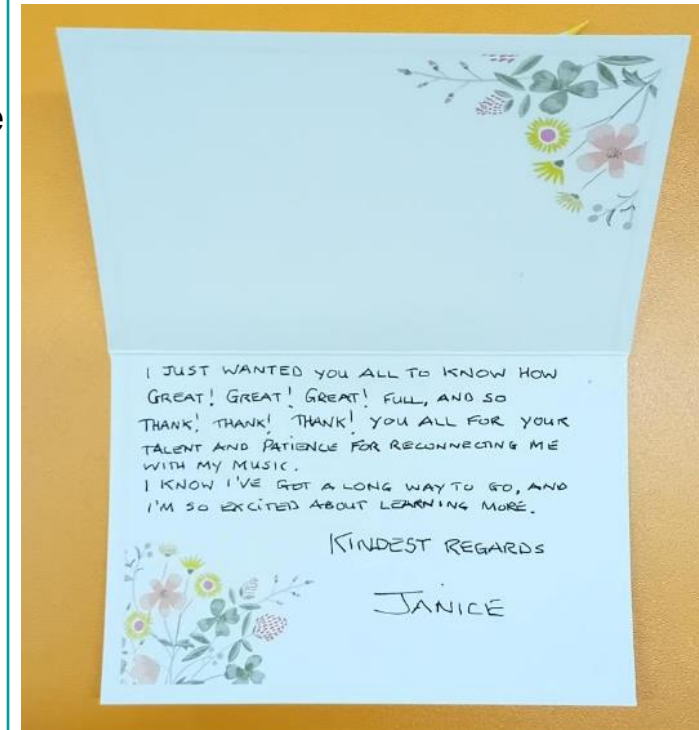 e
I JUST WANTED YOU ALL TO KNOW HOW
GREAT! GREAT! GREAT! FULL, AND SO
THANK! THANK! THANK! YOU ALL FOR YOUR
TALENT AND PATIENCE FOR RECONNECTING ME
WITH MY MUSIC.
I KNOW I'VE GOT A LONG WAY TO GO, AND
I'M SO EXCITED ABOUT LEARNING MORE.
KINDEST REGARDS
JANICE